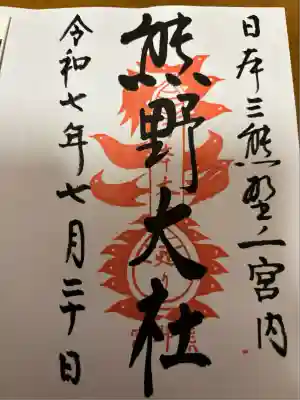 日本三熊野ノ一宮内
熊野大社
令和七年七月二十日